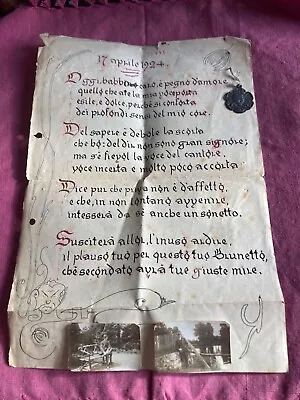 17 aprile 1924.
Oggi, babbo caro è pegno d'amore
quello che ate la mia
esile, e dolce, perchè si conforta
dei profondi sensi del mio core.
Del sapere è debole la scorta
che ho; del dir non sono gran signore;
ma s'è fievol la voce del cantore,
voce incerta e molto poco accorta
Dice pur che priva non è d'affetto,
e che, in non lontano avvenire,
intesserà da sè anche un sonetto.
Susciterà allor, l'inuso ardire,
il plauso tuo per questo tuo Brunetto,
chè secondato avrà tue giuste mire.